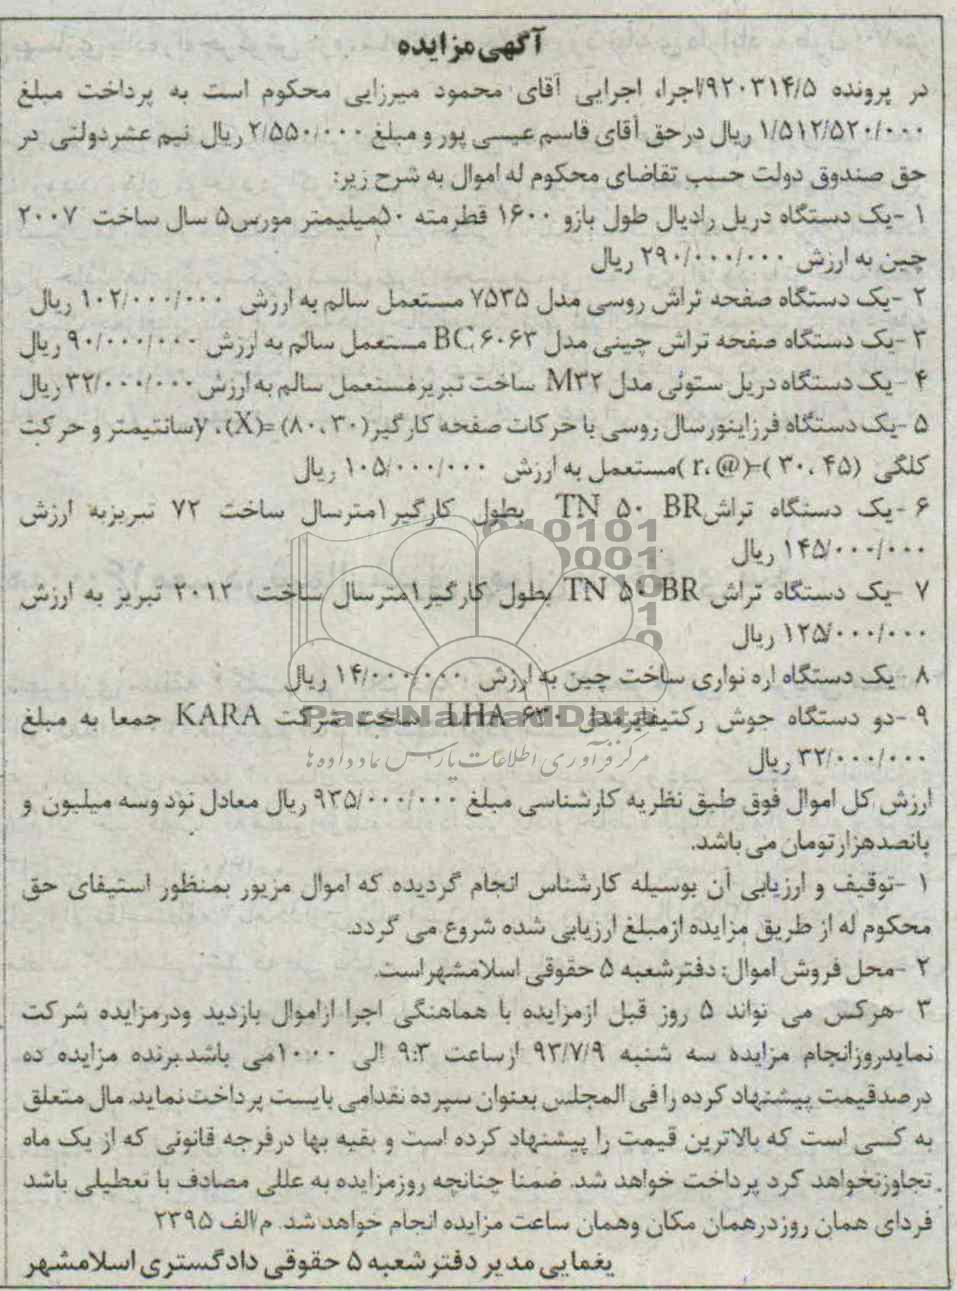 آگهی مزایده
در پرونده ۹۲۰۳۱۴/۵/اجرا، اجرایی آقای محمود میرزایی محکوم است به پرداخت مبلغ
۱/۵۱۲/۵۲۰/۰۰۰ ریال درحق آقای قاسم عیسی پور و مبلغ ۲/۵۵۰/۰۰۰ ریال نیم عشردولتی در
حق صندوق دولت حسب تقاضای محکوم له اموال به شرح زیر:
۱ -یک دستگاه دریل رادیال طول بازو ۱۶۰۰ قطرمته ۵۰میلیمتر مورس۵ سال ساخت ۲۰۰۷
چین به ارزش ۲۹۰/۰۰۰/۰۰۰ ریال
۲ -یک دستگاه صفحه تراش روسی مدل ۷۵۳۵ مستعمل سالم به ارزش ۱۰۲/۰۰۰/۰۰۰ ریال
۳ -یک دستگاه صفحه تراش چینی مدل BC۶۰۶۳ مستعمل سالم به ارزش ۹۰/۰۰۰/۰۰۰ ریال
۴ -یک دستگاه دریل ستونی مدل M۳۲ ساخت تبریزمستعمل سالم به ارزش ۳۲/۰۰۰/۰۰۰ ریال
۵ -یک دستگاه فرزاینورسال روسی با حرکات صفحه کارگیر(۸۰،۳۰) =(X)،yسانتیمتر و حرکت
کلگی (۳۰،۴۵)=(@،r)مستعمل به ارزش ۱۰۵/۰۰۰/۰۰۰ ریال
۶ -یک دستگاه تراش TN ۵۰ BR بطول کارگیر۱مترسال ساخت ۷۲ تبریزبه ارزش
۱۴۵/۰۰۰/۰۰۰ ریال
۷ -یک دستگاه تراش TN ۵۰ BR بطول کارگیر۱مترسال ساخت ۲۰۱۲ تبریز به ارزش
۱۲۵/۰۰۰/۰۰۰ ریال
۸ -یک دستگاه اره نواری ساخت چین به ارزش ۱۴/۰۰۰/۰۰۰ ریال
۹ -دو دستگاه جوش رکتیفایرمدل LHA ۶۳۰ ساخت شرکت KARA جمعا به مبلغ
ParsNamadData
۳۲/۰۰۰/۰۰۰ ریال
مرکز فرآوری اطلاعات پارس نماد داده ها
ارزش کل اموال فوق طبق نظریه کارشناسی مبلغ ۹۳۵/۰۰۰/۰۰۰ ریال معادل نود وسه میلیون و
پانصدهزارتومان می باشد.
۱ -توقیف و ارزیابی آن بوسیله کارشناس انجام گردیده که اموال مزبور بمنظور استیفای حق
محکوم له از طریق مزایده ازمبلغ ارزیابی شده شروع می گردد.
۲ -محل فروش اموال: دفترشعبه ۵ حقوقی اسلامشهراست.
۳ -هرکس می تواند ۵ روز قبل ازمزایده با هماهنگی اجرا ازاموال بازدید ودرمزایده شرکت
نمایدروزانجام مزایده سه شنبه ۹۳/۷/۹ ازساعت ۹:۳ الی ۱۰:۰۰می باشدبرنده مزایده ده
درصدقیمت پیشنهاد کرده را فی المجلس بعنوان سپرده نقدامی بایست پرداخت نماید. مال متعلق
به کسی است که بالاترین قیمت را پیشنهاد کرده است و بقیه بها درفرجه قانونی که از یک ماه
تجاوزنخواهد کرد پرداخت خواهد شد. ضمنا چنانچه روزمزایده به عللی مصادف با تعطیلی باشد
فردای همان روزدرهمان مکان وهمان ساعت مزایده انجام خواهدشد. م/الف ۲۳۹۵
یغمایی مدیر دفترشعبه ۵ حقوقی دادگستری اسلامشهر